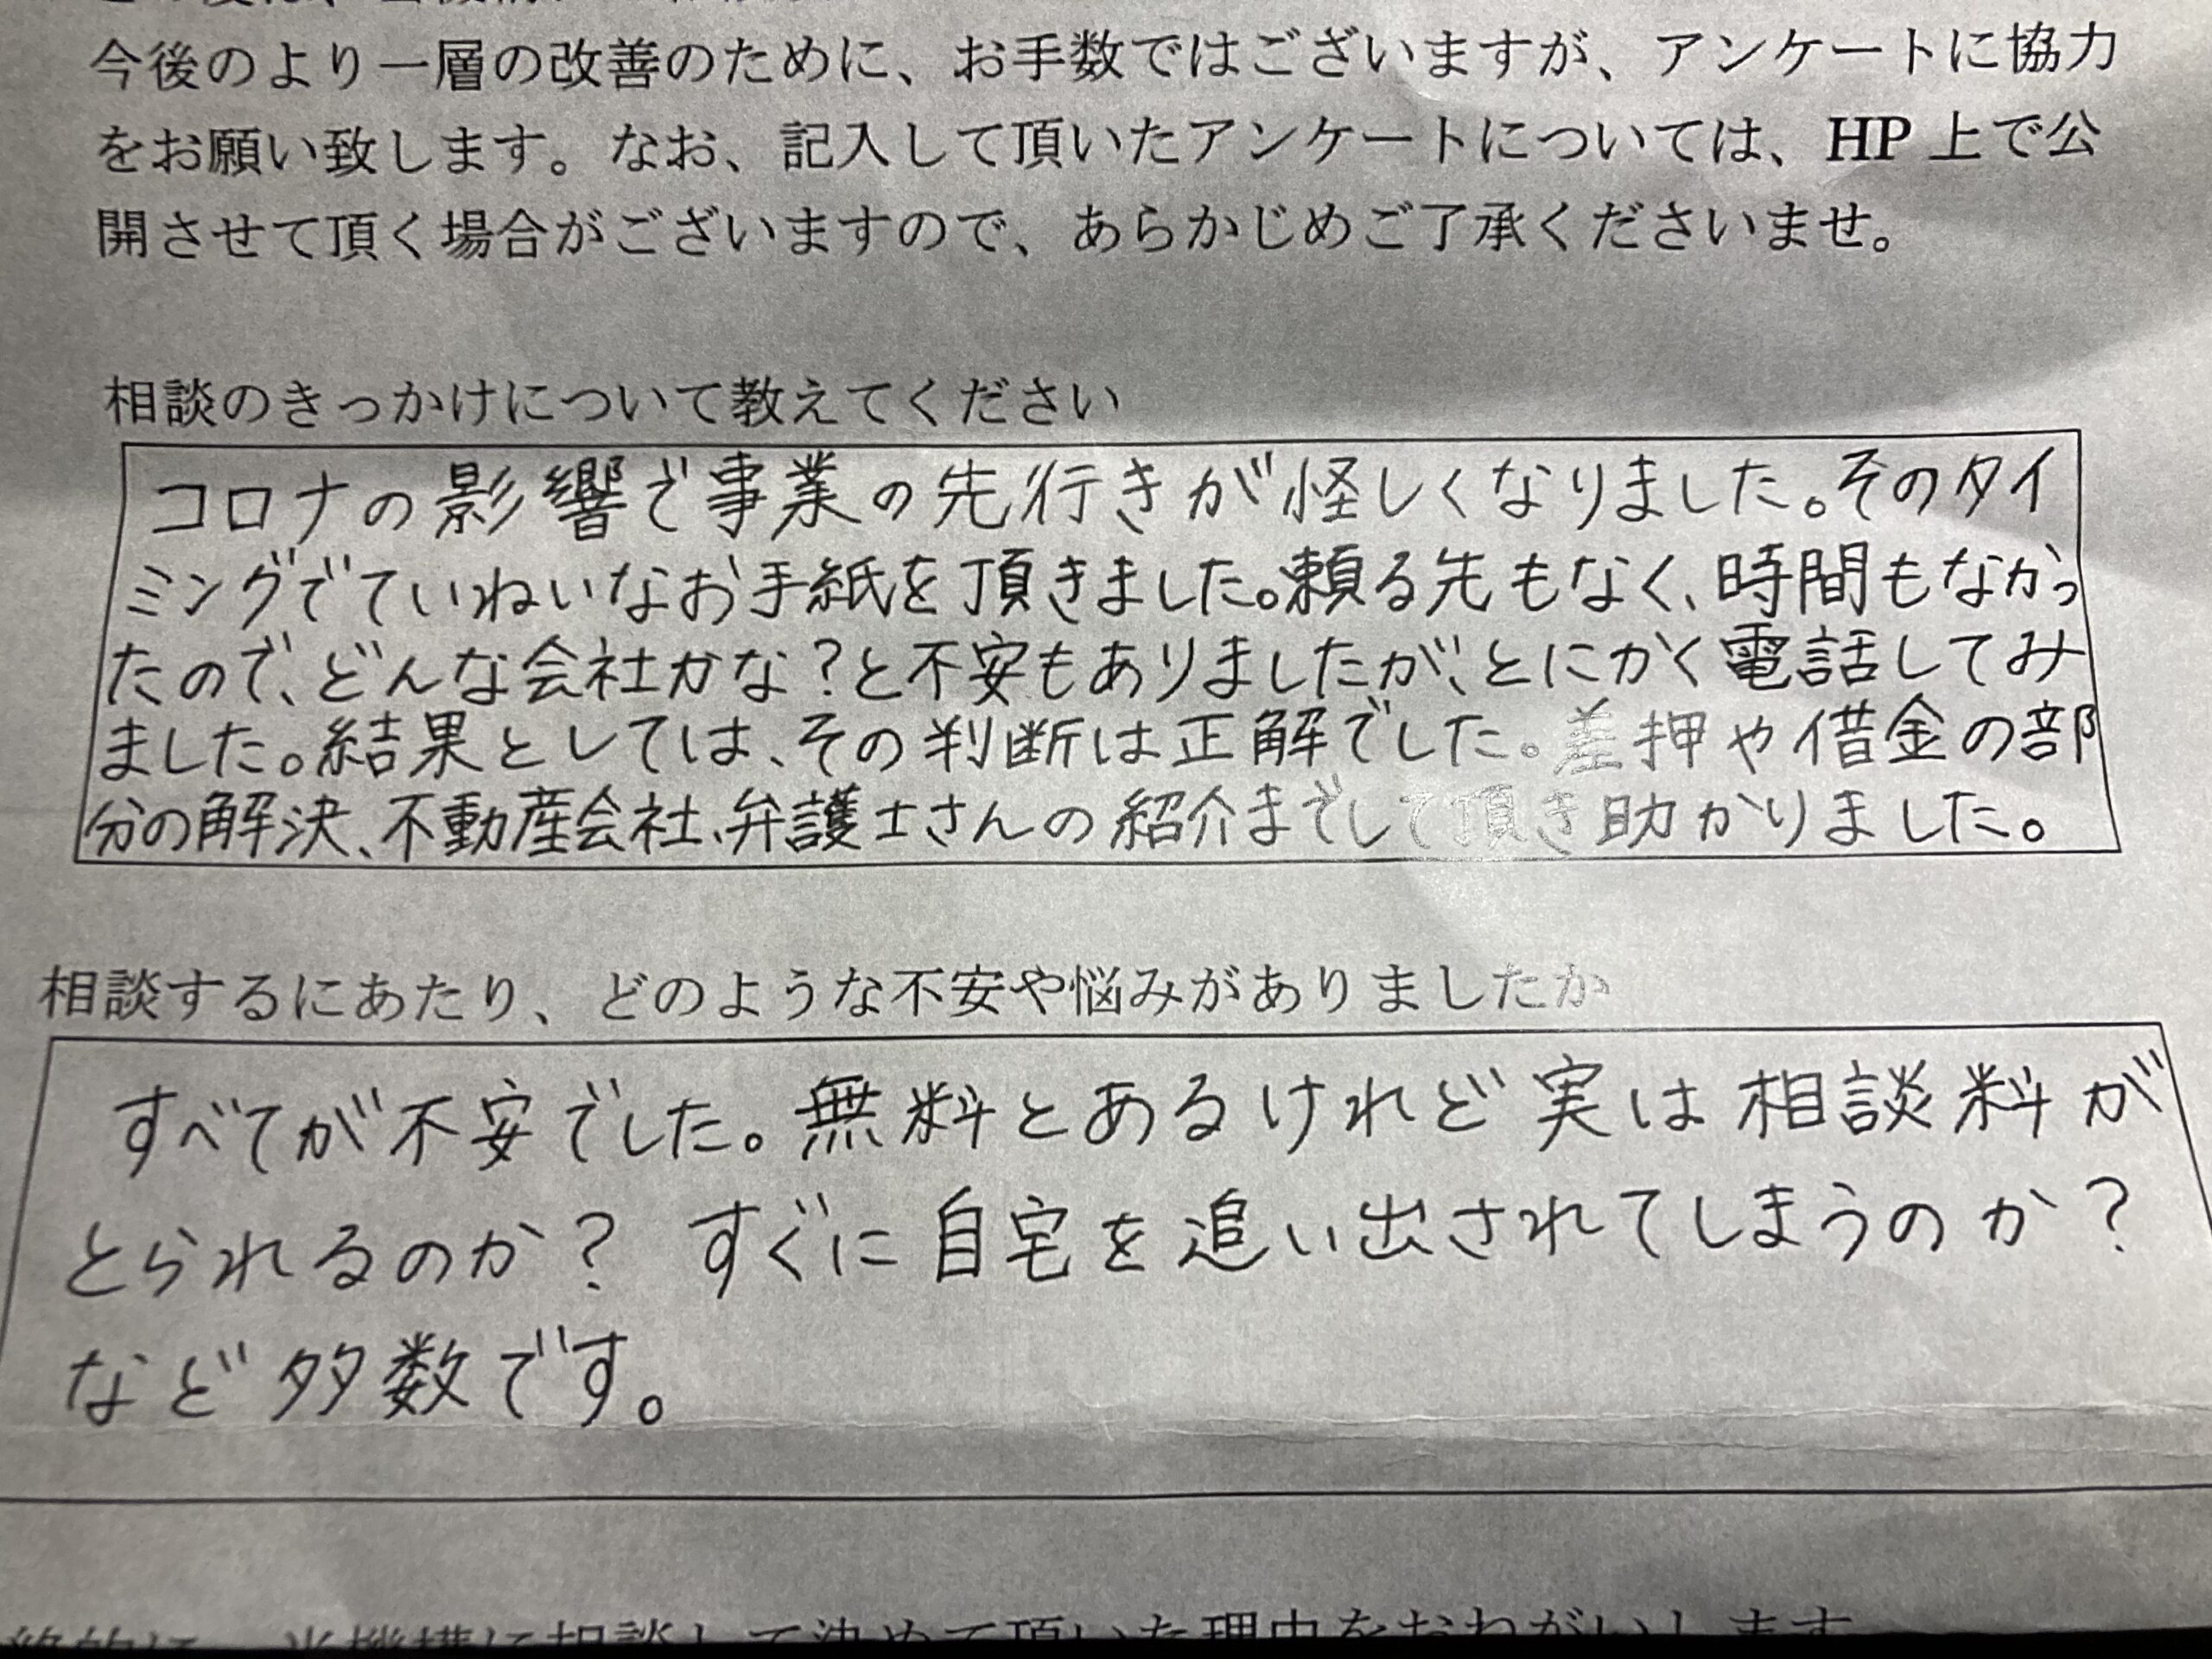 今後のより一層の改善のために、お手数ではございますが、アンケートに協力
をお願い致します。なお、記入して頂いたアンケートについては、HP 上で公
開させて頂く場合がございますので、あらかじめご了承くださいませ。
相談のきっかけについて教えてください
コロナの影響で事業の先行きが怪しくなりました。そのタイ
ミングでていねいなお手紙を頂きました。頼る先もなく、時間もなかっ
たので、どんな会社かな？と不安もありましたが、とにかく電話してみ
ました。結果としては、その判断は正解でした。差押や借金の部
分の解決、不動産会社、弁護士さんの紹介までして頂き助かりました。
相談するにあたり、どのような不安や悩みがありましたか
すべてが不安でした。無料とあるけれど実は相談料が
とられるのか？ すぐに自宅を追い出されてしまうのか？
など多数です。
当機構に相談して決めて頂いた理由をおねがいします